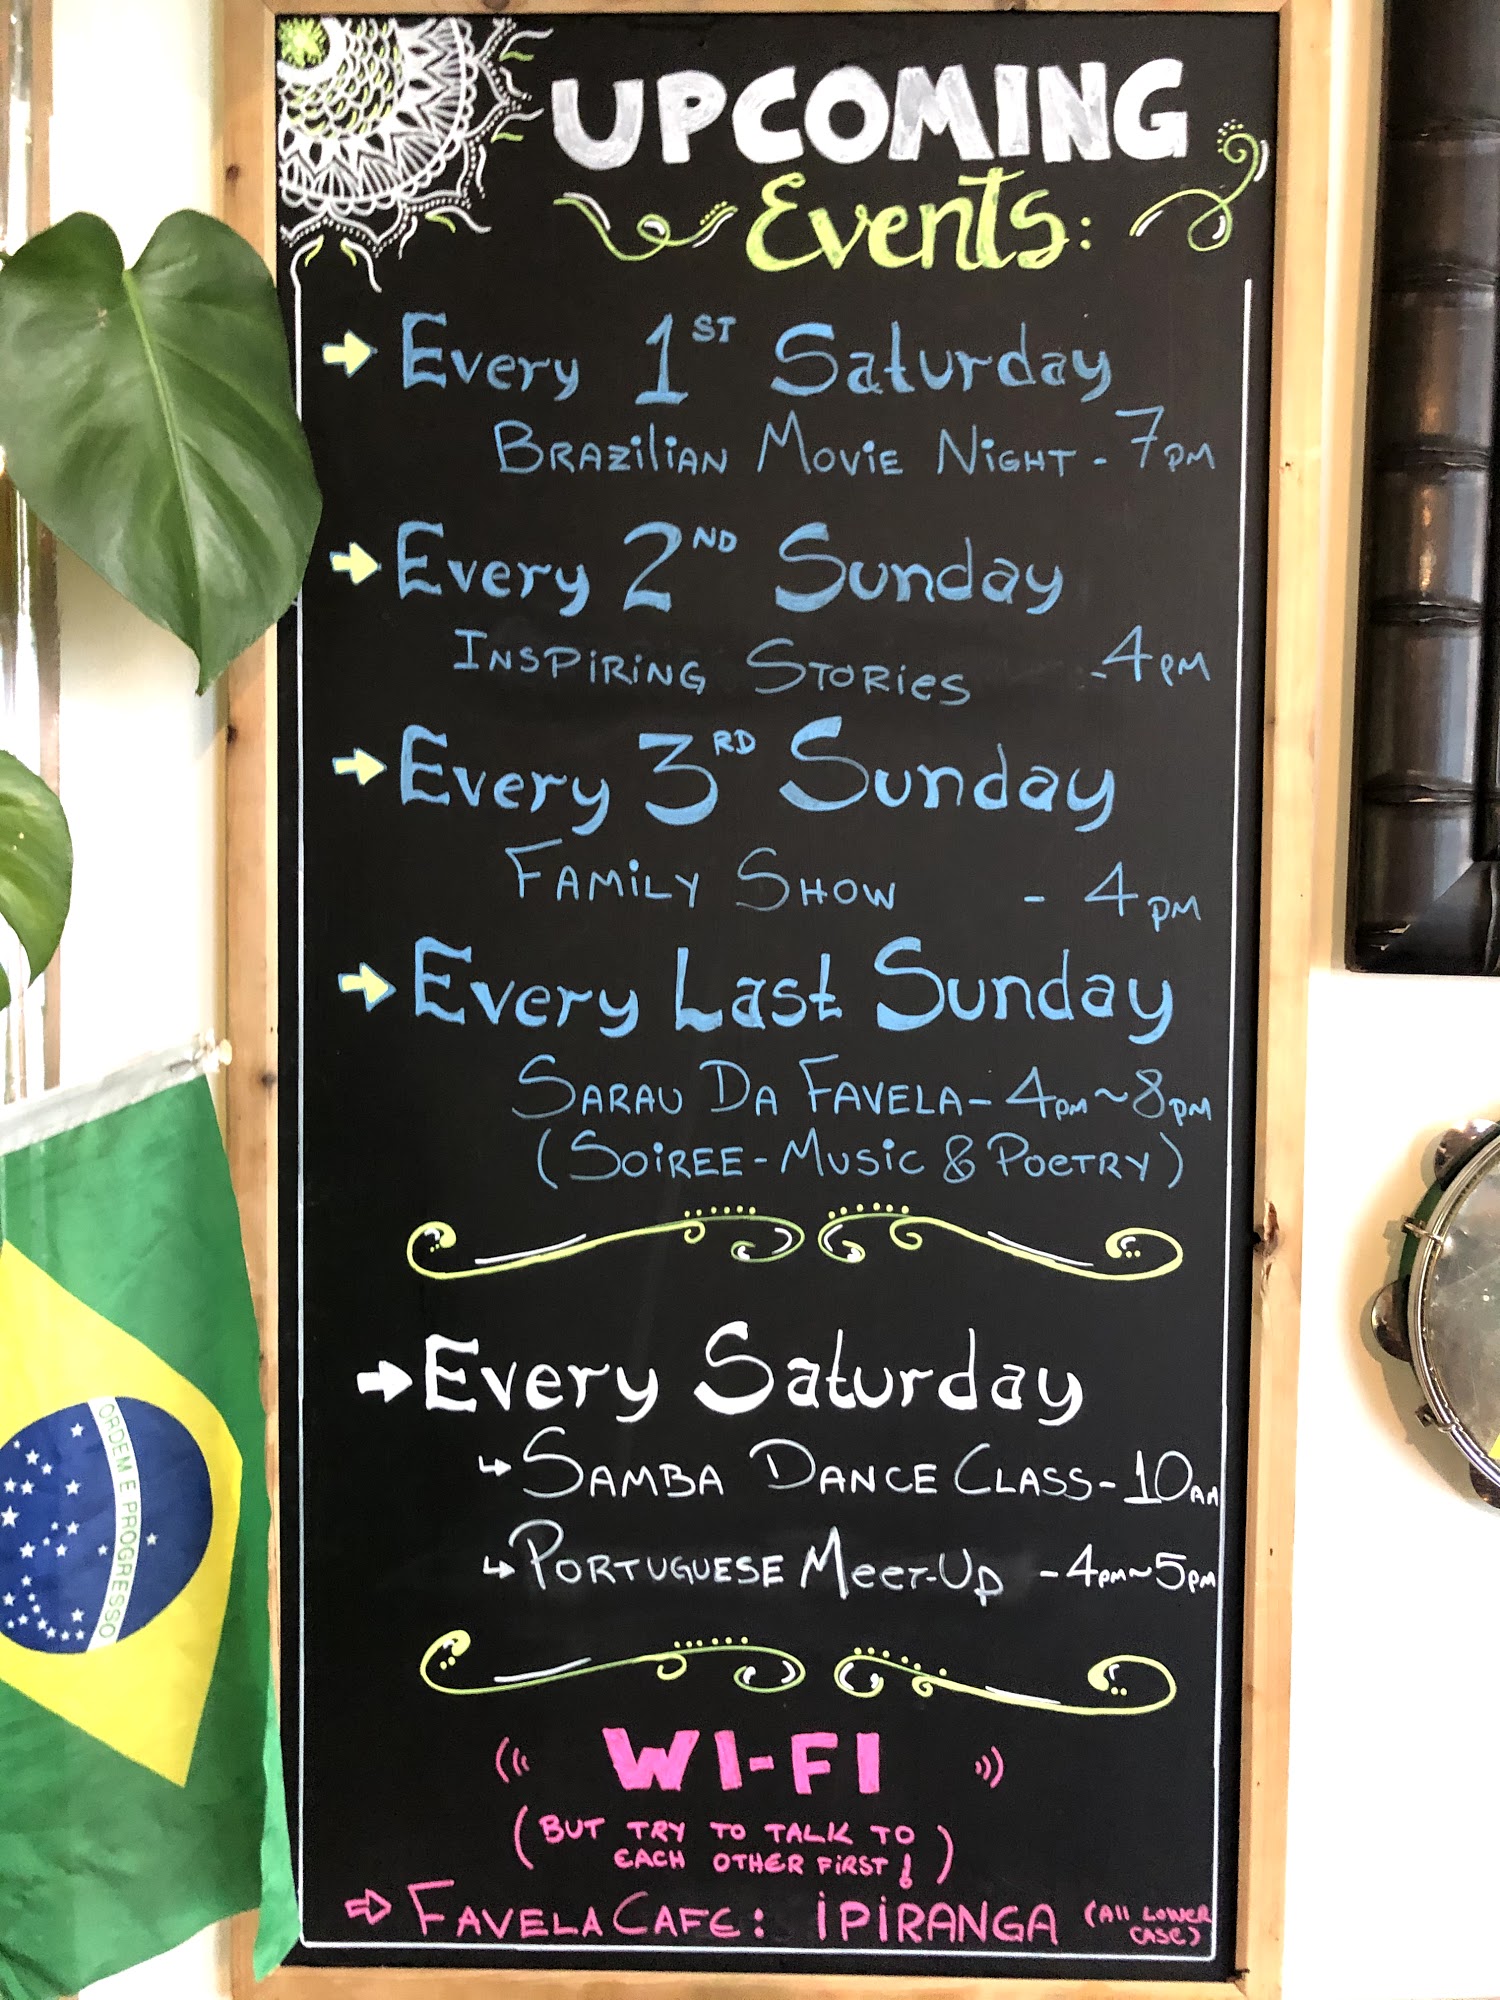 UPCOMING
Events:
Every 1ST Saturday
BRAZiliAN MOViE NiGHT - 7PM
Every 2ND Sunday
INSPiRiNG STORiES - 4PM
Every 3RD Sunday
FAMiLY SHOW - 4PM
Every Last Sunday
SARAU DA FAVELA - 4PM~8PM
(SOiREE - MUSiC & POETRY)
Every Saturday
SAMBA DANCE CLASS - 10AM
PORTUGUESE MEET-UP - 4PM~5PM
WI-FI
(BUT TRY TO TALK TO
EACH OTHER FiRST!)
FAVELA CAFE: iPiRANGA (All LOWER
CASE)
ORDEM E PROGRESSO